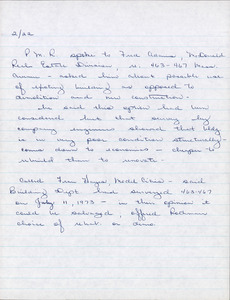 2/22
P.M.R. spoke to Fred Adams, McDonald
Real Estate Division, re. 463-467 Mass.
Avenue - asked him about possible use
of existing building as opposed to
demolition and new construction -
He said this option had been
considered but that survey by
company engineers showed that bldg
is in very poor condition structurally -
came down to economics - cheaper to
rebuild than to renovate.
Called Jim Hayes, Model Cities - said
Building Dept. had surveyed 463-467
on July 11, 1973 - in their opinion it
could be salvaged, offered
choice of rehab. or demo.